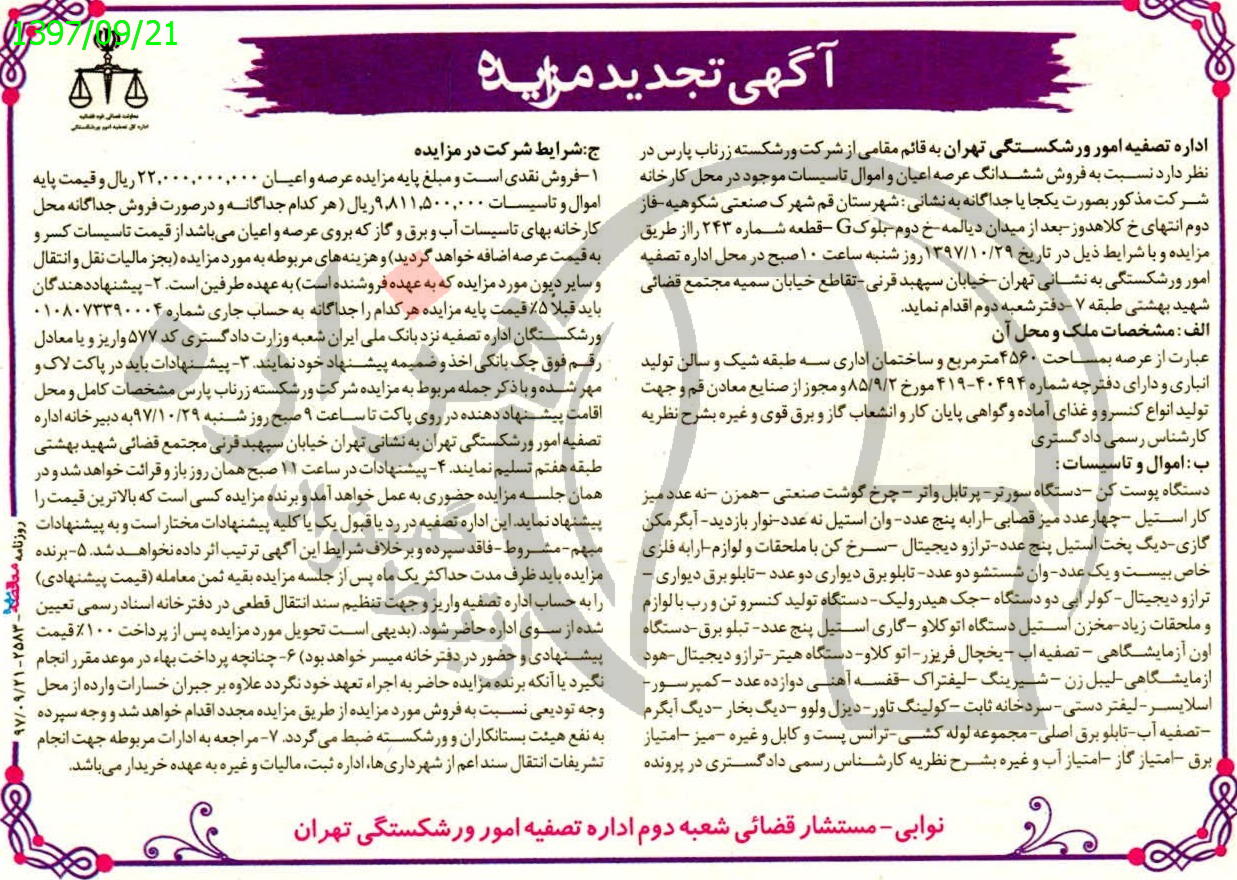 1397/09/21
معاونت قضائی قوه قضائیه
اداره کل تصفیه امور ورشکستگی
آگهی تجدید مزایده
اداره تصفیه امور ورشکستگی تهران به قائم مقامی از شرکت ورشکسته زرناب پارس در
نظر دارد نسبت به فروش ششدانگ عرصه اعیان و اموال تاسیسات موجود در محل کارخانه
شرکت مذکور بصورت یکجا یا جداگانه به نشانی: شهرستان قم شهرک صنعتی شکوهیه-فاز
دوم انتهای خ کلاهدوز-بعد از میدان دیالمه-خ دوم-بلوک G -قطعه شماره ۲۴۳ رااز طریق
مزایده و با شرایط ذیل در تاریخ ۱۳۹۷/۱۰/۲۹روز شنبه ساعت ۱۰صبح در محل اداره تصفیه
امور ورشکستگی به نشانی تهران-خیابان سپهبد قرنی-تقاطع خیابان سمیه مجتمع قضائی
شهید بهشتی طبقه ۷-دفتر شعبه دوم اقدام نماید.
الف: مشخصات ملک و محل آن
عبارت از عرصه بمساحت ۴۵۶۰مترمربع و ساختمان اداری سه طبقه شیک و سالن تولید
انباری و دارای دفترچه شماره ۴۰۴۹۴-۴۱۹ مورخ ۸۵/۹/۲ و مجوز از صنایع معادن قم و جهت
تولید انواع کنسرو و غذای آماده و گواهی پایان کار و انشعاب گاز و برق قوی و غیره بشرح نظریه
کارشناس رسمی دادگستری
ب: اموال و تاسیسات:
دستگاه پوست کن -دستگاه سورتر- پرتابل واتر - چرخ گوشت صنعتی -همزن -نه عدد میز
کار استیل -چهار عدد میز قصابی-ارابه پنج عدد-وان استیل نه عدد-نوار بازدید- آبگرمکن
گازی-دیگ پخت استیل پنج عدد-ترازو دیجیتال -سرخ کن با ملحقات و لوازم-ارابه فلزی
خاص بیست و یک عدد-وان دستشو دو عدد- تابلو برق دیواری دو عدد -تابلو برق دیواری -
ترازو دیجیتال- کولر آبی دو دستگاه -جک هیدرولیک-دستگاه تولید کنسرو تن و رب با لوازم
و ملحقات زیاد-مخزن استیل دستگاه اتوکلاو -گاری استیل پنج عدد- تبلو برق-دستگاه
اون آزمایشگاهی - تصفیه آب -یخچال فریزر- اتو کلاو- دستگاه هیتر-ترازو دیجیتال-هود
ازمایشگاهی-لیبل زن -شیرینگ -لیفتراک -قفسه آهنی دوازده عدد -کمپرسور-
اسلایسر-لیفتر دستی-سردخانه ثابت -کولینگ تاور-دیزل ولوو -دیگ بخار -دیگ آبگرم
-تصفیه آب-تابلو برق اصلی-مجموعه لوله کشی-ترانس پست و کابل و غیره -میز -امتیاز
برق -امتیاز گاز -امتیاز آب و غیره بشرح نظریه کارشناس رسمی دادگستری در پرونده
ج:شرایط شرکت در مزایده
۱-فروش نقدی است و مبلغ پایه مزایده عرصه و اعیان ۲۲,۰۰۰,۰۰۰,۰۰۰ ریال و قیمت پایه
اموال و تاسیسات ۹,۸۱۱,۵۰۰,۰۰۰ریال (هر کدام جداگانه و درصورت فروش جداگانه محل
کارخانه بهای تاسیسات آب و برق و گاز که بروی عرصه و اعیان می‌باشد از قیمت تاسیسات کسر و
به قیمت عرصه اضافه خواهد گردید) و هزینه‌های مربوطه به مورد مزایده (بجز مالیات نقل و انتقال
و سایر دیون مورد مزایده که به عهده فروشنده است) به عهده طرفین است. ۲- پیشنهاددهندگان
باید قبلاً ۵٪ قیمت پایه مزایده هر کدام را جداگانه به حساب جاری شماره ۰۱۰۸۰۷۳۳۹۰۰۰۴
ورشکستگان اداره تصفیه نزد بانک ملی ایران شعبه وزارت دادگستری کد ۵۷۷ واریز و یا معادل
رقم فوق چک بانکی اخذ و ضمیمه پیشنهاد خود نمایند. ۳- پیشنهادات باید در پاکت لاک و
مهر شده و با ذکر جمله مربوط به مزایده شرکت ورشکسته زرناب پارس مشخصات کامل و محل
اقامت پیشنهاد دهنده در روی پاکت تا ساعت ۹ صبح روز شنبه ۹۷/۱۰/۲۹به دبیرخانه اداره
تصفیه امور ورشکستگی تهران به نشانی تهران خیابان سپهبد قرنی مجتمع قضائی شهید بهشتی
طبقه هفتم تسلیم نمایند. ۴- پیشنهادات در ساعت ۱۱ صبح همان روز باز و قرائت خواهد شد و در
همان جلسه مزایده حضوری به عمل خواهد آمد و برنده مزایده کسی است که بالاترین قیمت را
پیشنهاد نماید. این اداره تصفیه در رد یا قبول یک یا کلیه پیشنهادات مختار است و به پیشنهادات
مبهم-مشروط-فاقد سپرده و برخلاف شرایط این آگهی ترتیب اثر داده نخواهد شد. ۵-برنده
مزایده باید ظرف مدت حداکثر یک ماه پس از جلسه مزایده بقیه ثمن معامله (قیمت پیشنهادی)
را به حساب اداره تصفیه واریز و جهت تنظیم سند انتقال قطعی در دفترخانه اسناد رسمی تعیین
شده از سوی اداره حاضر شود. (بدیهی است تحویل مورد مزایده پس از پرداخت ۱۰۰٪ قیمت
پیشنهادی و حضور در دفترخانه میسر خواهد بود) ۶- چنانچه پرداخت بهاء در موعد مقرر انجام
نگیرد یا آنکه برنده مزایده حاضر به اجراء تعهد خود نگردد علاوه بر جبران خسارات وارده از محل
وجه تودیعی نسبت به فروش مورد مزایده از طریق مزایده مجدد اقدام خواهد شد و وجه سپرده
به نفع هیئت بستانکاران و ورشکسته ضبط می‌گردد. ۷- مراجعه به ادارات مربوطه جهت انجام
تشریفات انتقال سند اعم از شهرداری‌ها، اداره ثبت، مالیات و غیره به عهده خریدار می‌باشد.
نوابی-مستشار قضائی شعبه دوم اداره تصفیه امور ورشکستگی تهران
روزنامه مناقصه مزایده - ۲۵۸۳-۹۷/۰۹/۲۱